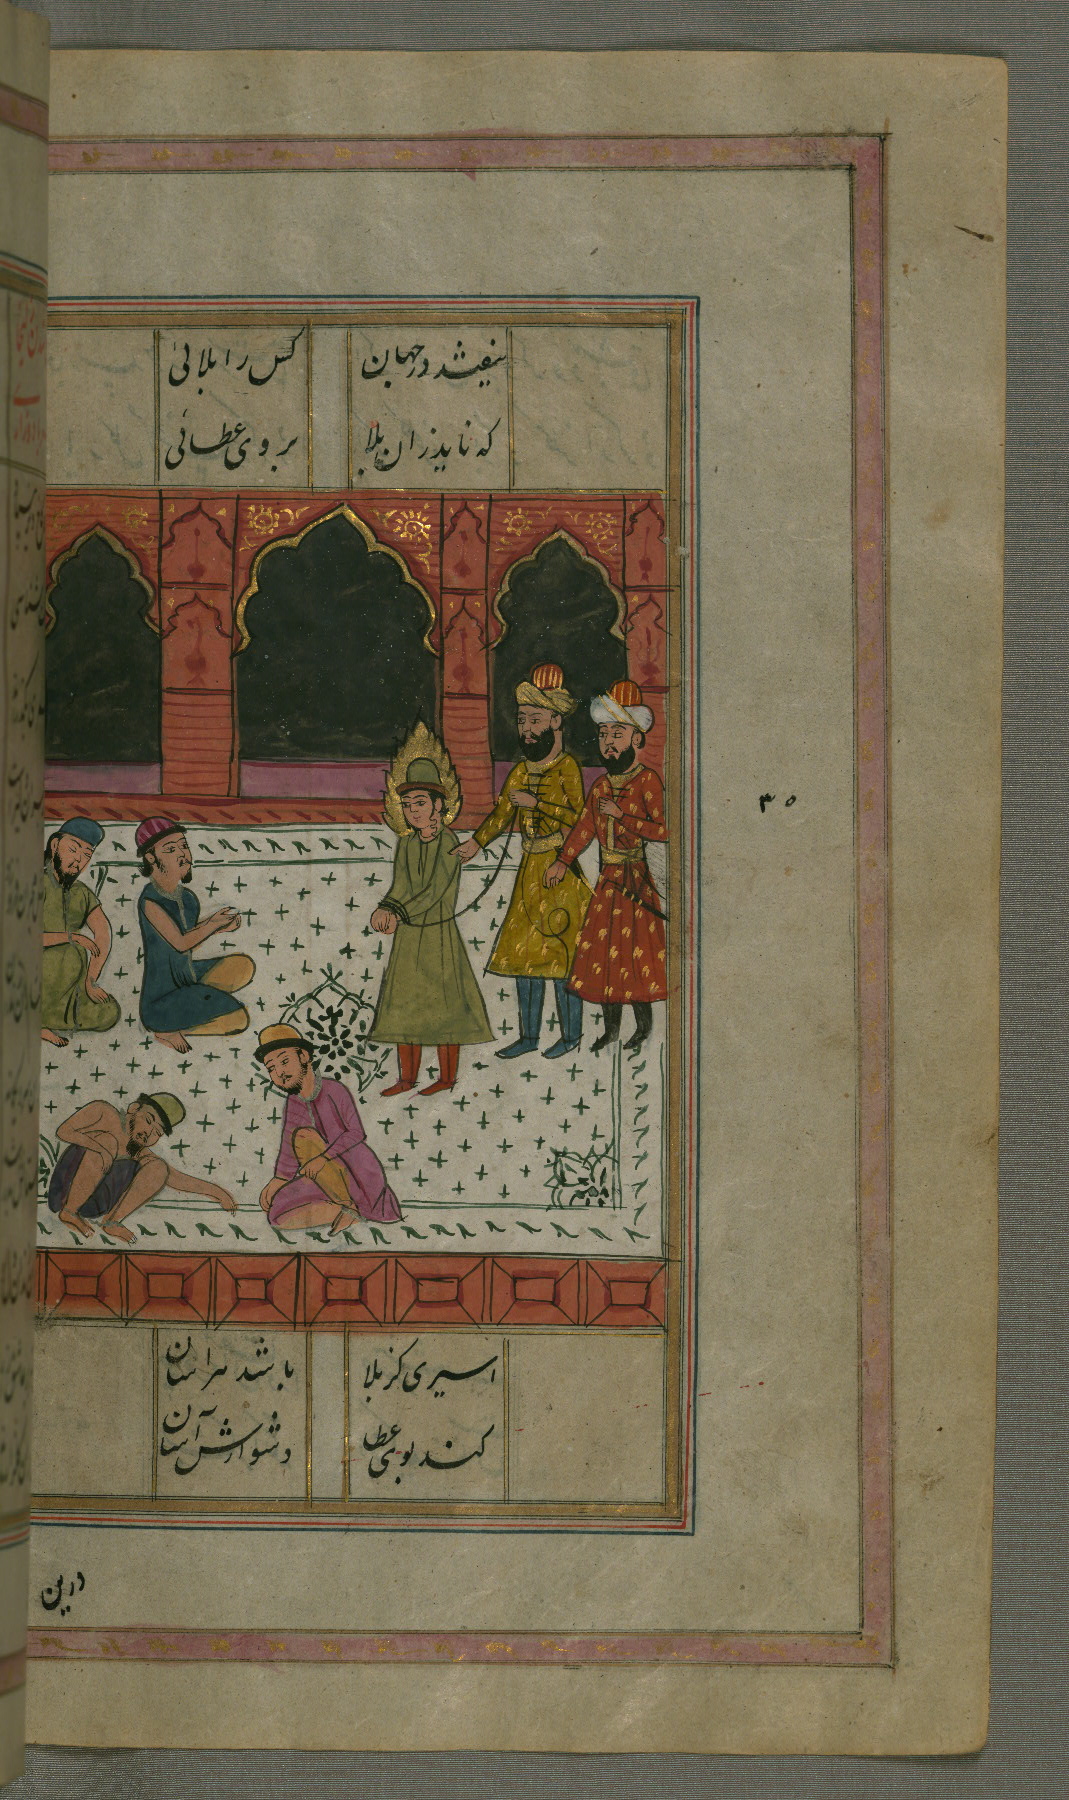 نیفتد در جهان کس را بلائی
که ناید زان بلا بر وی عطائی
۳۵
اسیری کز بلا باشد هراسان
کند بوی عطا دشوارش آسان
درین